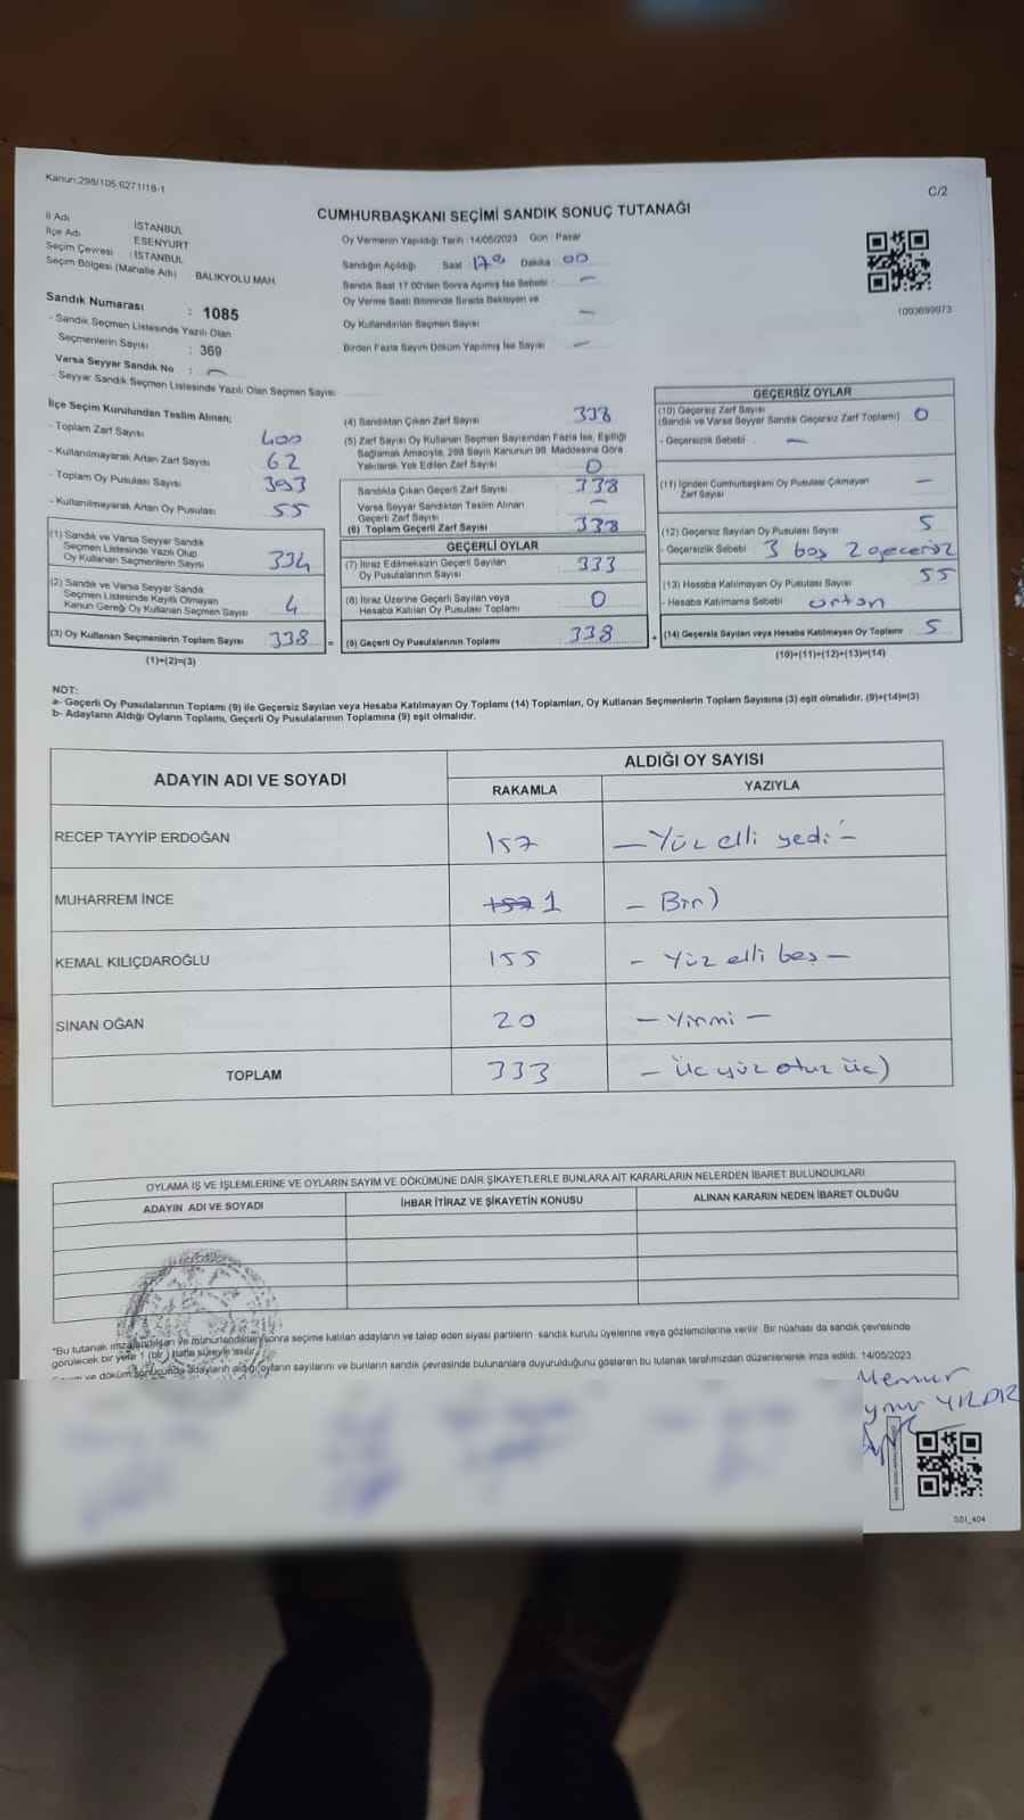 Kanun:298/105;6271/18-1
C/2
CUMHURBAŞKANI SEÇİMİ SANDIK SONUÇ TUTANAĞI
İl Adı : İSTANBUL
İlçe Adı : ESENYURT
Seçim Çevresi : İSTANBUL
Seçim Bölgesi (Mahalle Adı) BALIKYOLU MAH.
Oy Vermenin Yapıldığı Tarih :14/05/2023 Gün : Pazar
Sandığın Açıldığı Saat 17 Dakika : 00
Sandık Saat 17.00'den Sonra Açılmış İse Sebebi : —
Oy Verme Saati Bitiminde Sırada Bekleyen ve
Oy Kullandırılan Seçmen Sayısı —
Birden Fazla Sayım Döküm Yapılmış İse Sayısı —
1000699973
Sandık Numarası : 1085
- Sandık Seçmen Listesinde Yazılı Olan
Seçmenlerin Sayısı : 369
Varsa Seyyar Sandık No : —
- Seyyar Sandık Seçmen Listesinde Yazılı Olan Seçmen Sayısı
İlçe Seçim Kurulundan Teslim Alınan;
- Toplam Zarf Sayısı 400
- Kullanılmayarak Artan Zarf Sayısı 62
- Toplam Oy Pusulası Sayısı 393
- Kullanılmayarak Artan Oy Pusulası 55
(1) Sandık ve Varsa Seyyar Sandık
Seçmen Listesinde Yazılı Olup
Oy Kullanan Seçmenlerin Sayısı 334
(2) Sandık ve Varsa Seyyar Sandık
Seçmen Listesinde Kayıtlı Olmayan
Kanun Gereği Oy Kullanan Seçmen Sayısı 4
(3) Oy Kullanan Seçmenlerin Toplam Sayısı 338 =
(1)+(2)=(3)
(4) Sandıktan Çıkan Zarf Sayısı 338
(5) Zarf Sayısı Oy Kullanan Seçmen Sayısından Fazla İse, Eşitliği
Sağlamak Amacıyla, 298 Sayılı Kanunun 98. Maddesine Göre
Yakılarak Yok Edilen Zarf Sayısı 0
Sandıkta Çıkan Geçerli Zarf Sayısı 338
Varsa Seyyar Sandıktan Teslim Alınan
Geçerli Zarf Sayısı —
(6) Toplam Geçerli Zarf Sayısı 338
GEÇERLİ OYLAR
(7) İtiraz Edilmeksizin Geçerli Sayılan
Oy Pusulalarının Sayısı 333
(8) İtiraz Üzerine Geçerli Sayılan veya
Hesaba Katılan Oy Pusulası Toplamı 0
(9) Geçerli Oy Pusulalarının Toplamı 338 +
GEÇERSİZ OYLAR
(10) Geçersiz Zarf Sayısı
(Sandık ve Varsa Seyyar Sandık Geçersiz Zarf Toplamı) 0
- Geçersizlik Sebebi —
(11) İçinden Cumhurbaşkanı Oy Pusulası Çıkmayan
Zarf Sayısı —
(12) Geçersiz Sayılan Oy Pusulası Sayısı 5
- Geçersizlik Sebebi 3 boş 2 geçersiz
(13) Hesaba Katılmayan Oy Pusulası Sayısı 55
- Hesaba Katılmama Sebebi artan
(14) Geçersiz Sayılan veya Hesaba Katılmayan Oy Toplamı 5
(10)+(11)+(12)+(13)=(14)
NOT:
a- Geçerli Oy Pusulalarının Toplamı (9) ile Geçersiz Sayılan veya Hesaba Katılmayan Oy Toplamı (14) Toplamları, Oy Kullanan Seçmenlerin Toplam Sayısına (3) eşit olmalıdır. (9)+(14)=(3)
b- Adayların Aldığı Oyların Toplamı, Geçerli Oy Pusulalarının Toplamına (9) eşit olmalıdır.
ADAYIN ADI VE SOYADI
ALDIĞI OY SAYISI
RAKAMLA YAZIYLA
RECEP TAYYİP ERDOĞAN 157 — Yüz elli yedi —
MUHARREM İNCE 1 — Bir)
KEMAL KILIÇDAROĞLU 155 — Yüz elli beş —
SİNAN OĞAN 20 — Yirmi —
TOPLAM 333 — Üç yüz otuz üç)
OYLAMA İŞ VE İŞLEMLERİNE VE OYLARIN SAYIM VE DÖKÜMÜNE DAİR ŞİKAYETLERLE BUNLARA AİT KARARLARIN NELERDEN İBARET BULUNDUKLARI
ADAYIN ADI VE SOYADI İHBAR İTİRAZ VE ŞİKAYETİN KONUSU ALINAN KARARIN NEDEN İBARET OLDUĞU
"Bu tutanak imzalandıktan ve mühürlendikten sonra seçime katılan adayların ve talep eden siyasi partilerin sandık kurulu üyelerine veya gözlemcilerine verilir. Bir nüshası da sandık çevresinde
görülecek bir yere 1 (bir) hafta süreyle asılır.
ve döküm sonucunda adayların aldığı oyların sayılarını ve bunların sandık çevresinde bulunanlara duyurulduğunu gösteren bu tutanak tarafımızdan düzenlenerek imza edildi. 14/05/2023
Memur
YILDIZ
S01_404